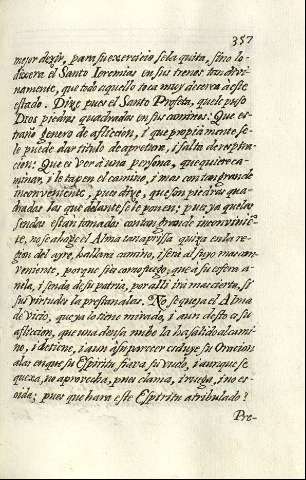 357
mejor dezir, para su exercicio se la quita, sino lo
dixera el Santo Ieremias en sus trenos tan divi-
namente, que todo aquello toca muy de cerca a este
estado. Dize pues el Santo Profeta, que le puso
Dios piedras quadradas en sus caminos. Que es-
traño genero de afliccion, i que propiamente se-
le puede dar titulo de apretura, i falta de respira-
cion: Que es ver à una persona, que quiere ca-
minar, i le tapen el camino, i mas con tan grande
inconveniente, pues dize, que son piedras qua-
dradas las que delante se le ponen; pues ya que las
sendas estan tomadas con tan grande inconvinie-
te, no se ahoge el Alma tan aprissa quiza en la re-
gion del ayre, hallarà camino, i serà al suyo mas con-
veniente, porque sin como fuego, que à su esfera a-
nela, i senda de su patria, por alli irà mas cierta, si
sus virtudes la prestan alas. No se quexa el Alma
de vicio, que ya lo tiene mirado, i aun desto es su
afliccion, que una densa nube la ha salido al cami-
no, i detiene, i aun à su parecer excluye su Oracion
alas en que su Espiritu fiava su vuelo, i aunque se
quexa, no aprovecha, pues clama, i ruega, i no es
oida; pues que harà este Espiritu atribulado?
Pre-